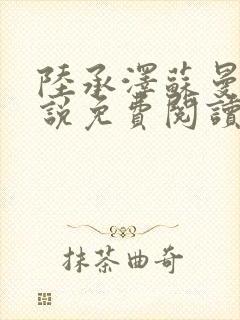 陸承澤蘇曼
說免費閱讀
抹茶曲奇